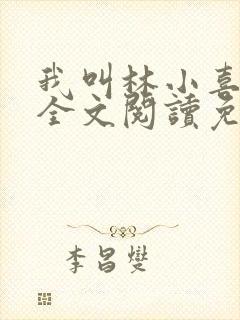 我叫林小喜
全文閱讀免
李昌燮